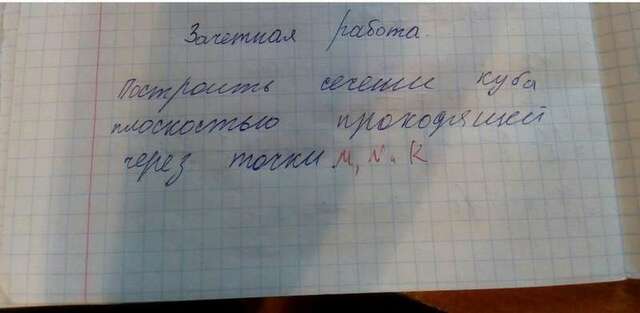 Зачетная работа.
Построить сечении куба
плоскостью проходящей
через точки M, N и K